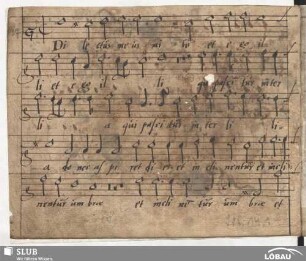 Di lectus meus mi hi et e go il
li et e go il li qui pascitur inter
li a qui pascitur inter li li
a do nec aspi ret di es et in cli nentur et incli
nentur um brae et incli nentur um brae et
SLUB
Wir führen Wissen.
LÖBAU